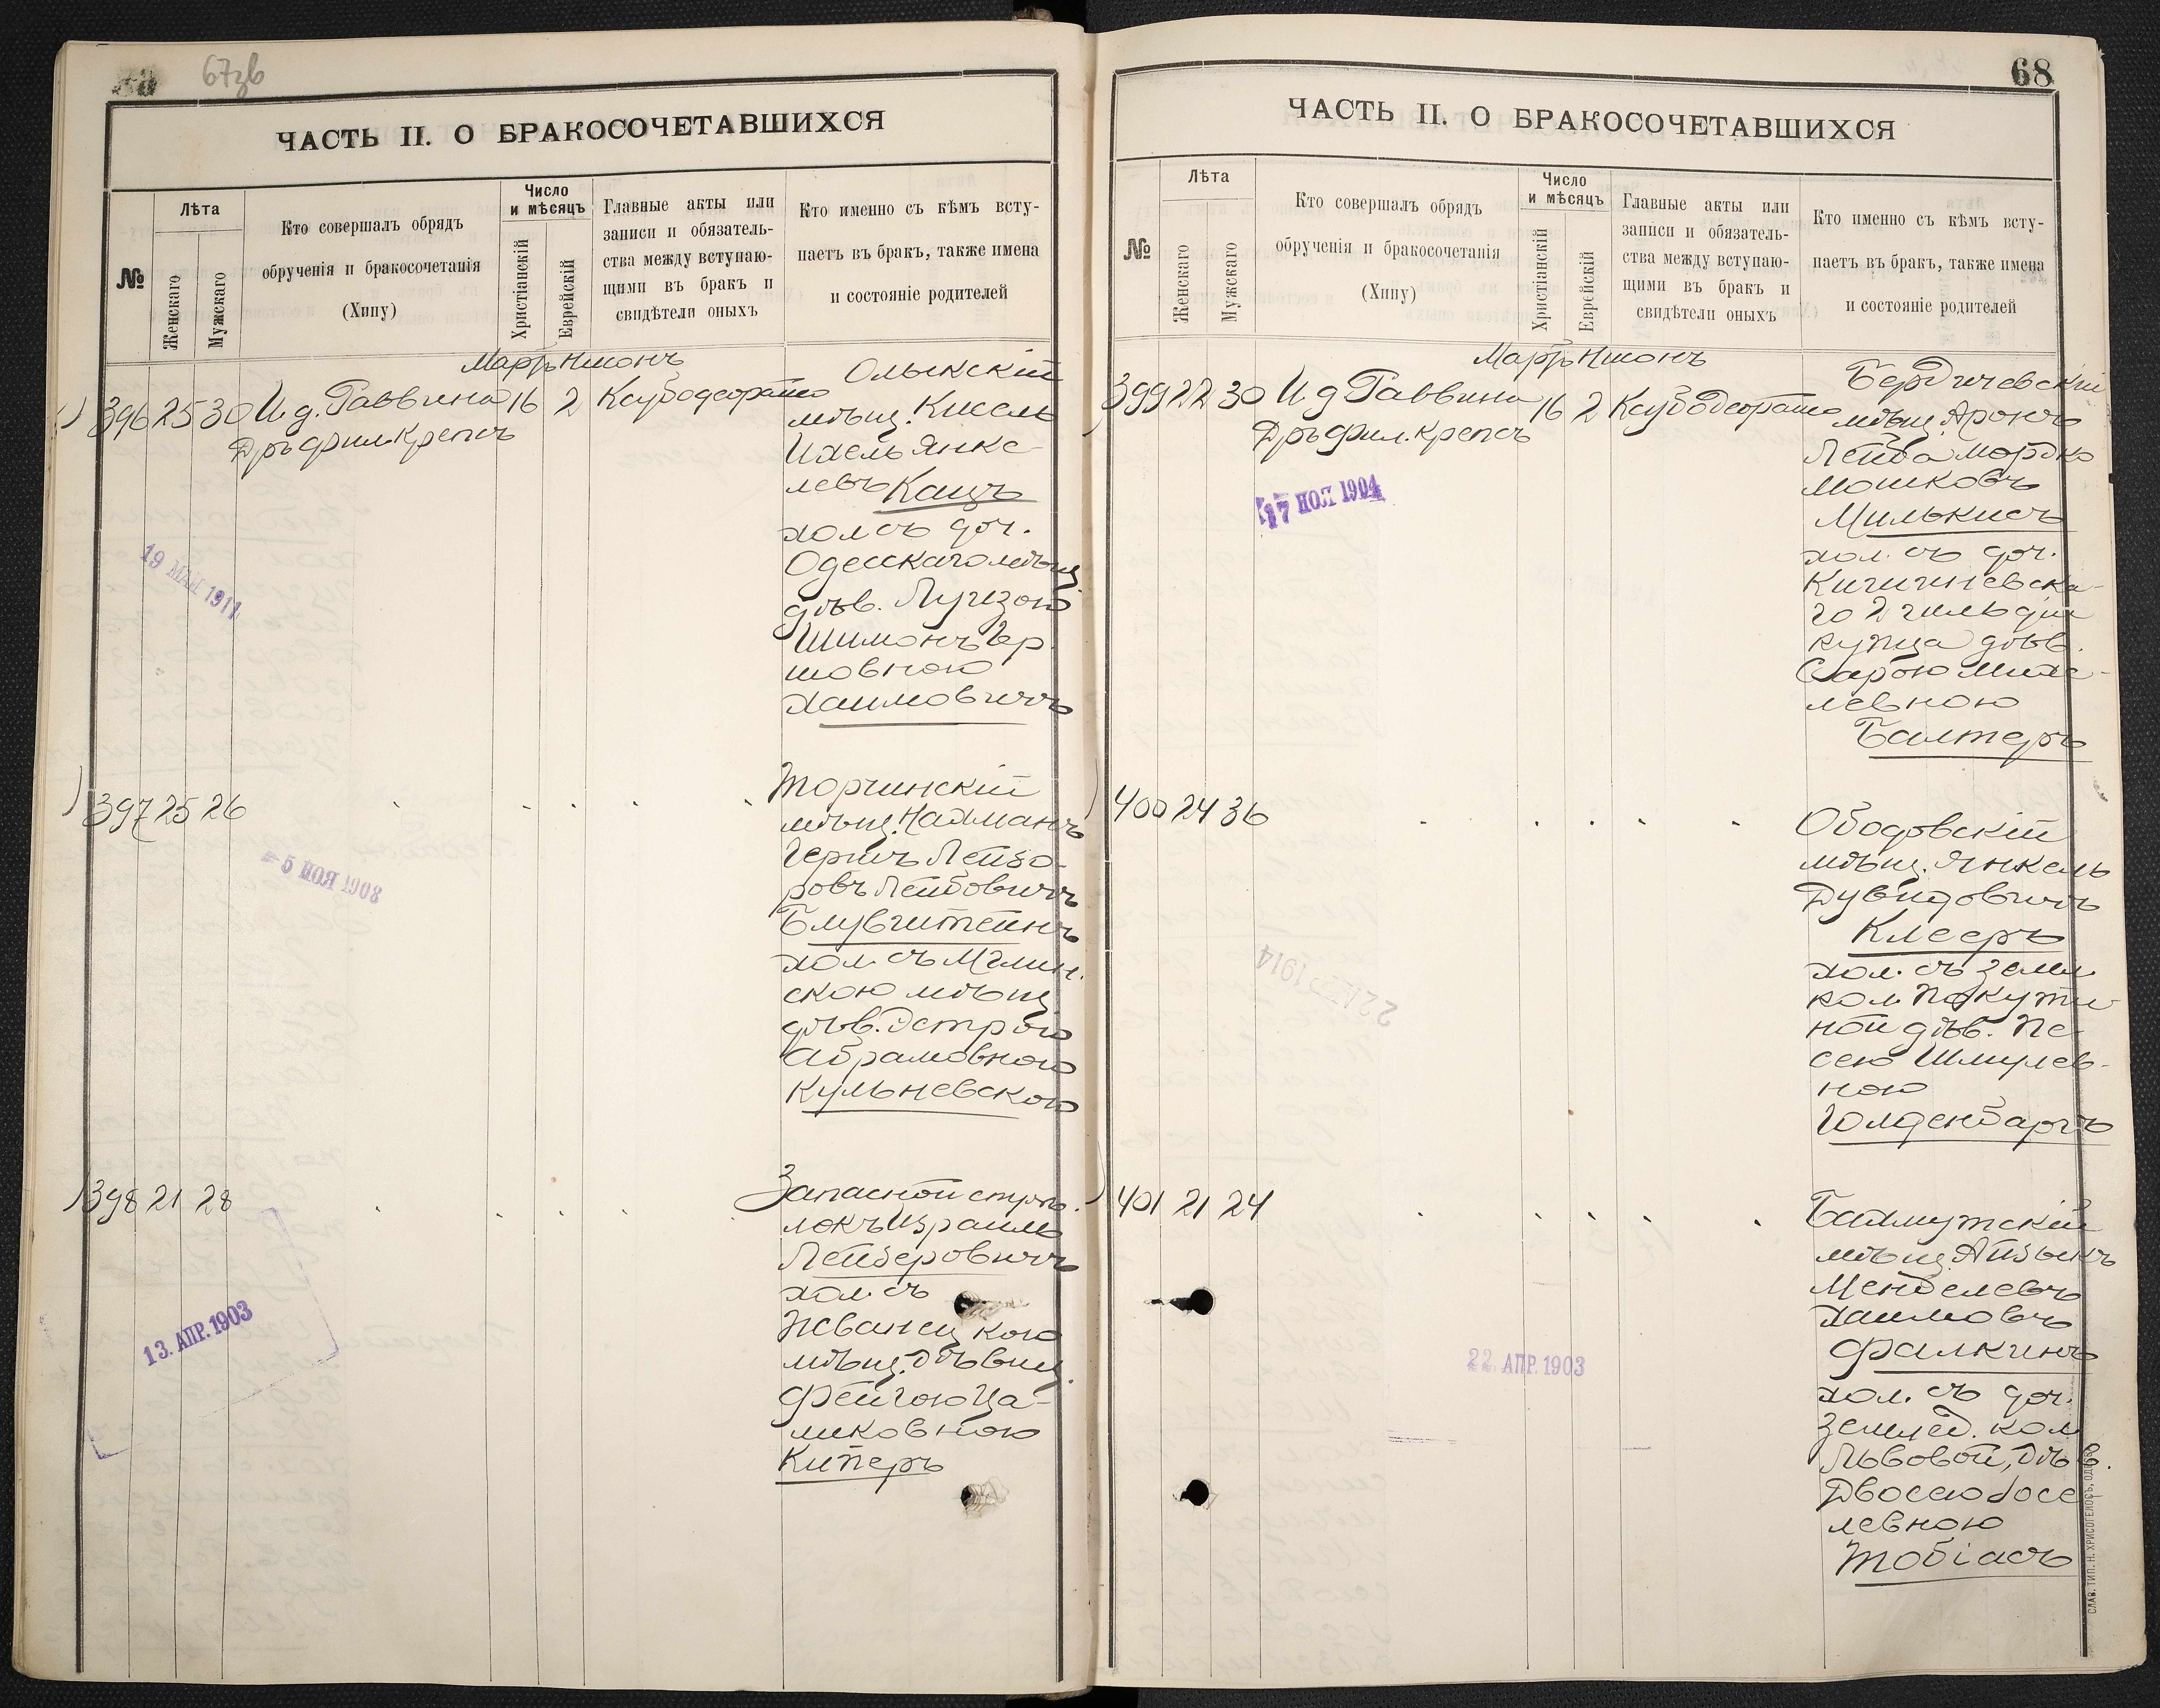 67зв
ЧАСТЬ II. О БРАКОСОЧЕТАВШИХСЯ
№
Лѣта
Женскаго
Мужскаго
Кто совершалъ обрядъ
обрученія и бракосочетанія
(Хипу)
Число
и мѣсяцъ
Христіанскій
Еврейскій
Главные акты или
записи и обязатель-
ства между вступаю-
щими въ бракъ и
свидѣтели оныхъ
Кто именно съ кѣмъ всту-
паетъ въ бракъ, также имена
и состояніе родителей
Мартъ Нисонъ
396 25 30 И. д. Раввина 16 2 Ксубо десорайто
Дръ фил. Крепсъ
Олыкскій
мѣщ. Кисель
Ихель Янке-
левъ Кацъ
хол съ доч.
Одесскаго мѣщ.
дѣв. Луизою
Шимонъ Гер
шовною
Хаимовичъ
19 МАЯ 1911
397 25 26
Торчинскій
мѣщ. Нахманъ
Гершъ Лейзо-
ровъ Лейбовичъ
Блувштейнъ
хол. съ Мглин.
скою мѣщ
дѣв. Эстрою
Абрамовною
Кульневскою
5 НОЯ 1908
398 21 28
Запасной стрѣ-
локъ Израиль
Лейзеровичъ
хол. съ
Жванецкою
мѣщ. дѣвиц.
Фейгою Ца-
ликовною
Киперъ
13. АПР. 1903
68
ЧАСТЬ II. О БРАКОСОЧЕТАВШИХСЯ
№
Лѣта
Женскаго
Мужскаго
Кто совершалъ обрядъ
обрученія и бракосочетанія
(Хипу)
Число
и мѣсяцъ
Христіанскій
Еврейскій
Главные акты или
записи и обязатель-
ства между вступаю-
щими въ бракъ и
свидѣтели оныхъ
Кто именно съ кѣмъ всту-
паетъ въ бракъ, также имена
и состояніе родителей
Мартъ Нисонъ
399 22 30 И д Раввина 16 2 Ксубо десорайто
Дръ фил. Крепсъ
Бердичевскій
мѣщ. Аронъ
Лейба Мордко
Мошковъ
Милькисъ
хол. съ доч.
Кишиневска-
го 2 гильдіи
купца дѣв.
Сарою Михе-
левною
Балтеръ
17 НОЯ 1904
400 24 36
Ободовскій
мѣщ. Янкель
Дувидовичъ
Клееръ
хол. съ Земл.
кол. Покути-
ной дѣв. Пе-
сею Шмулев-
ною
Голденбаргъ
22 1914
401 21 24
Бахмутскій
мѣщ. Айзыкъ
Менделевъ
Хаимовъ
Фалкинъ
хол. съ доч.
землед. кол
Львовой, дѣв.
Двоссею Iосе
левною
Тобіасъ
22. АПР. 1903
СЛАВ. ТИП. Н. ХРИСОГЕЛОСЪ, ОДЕССА